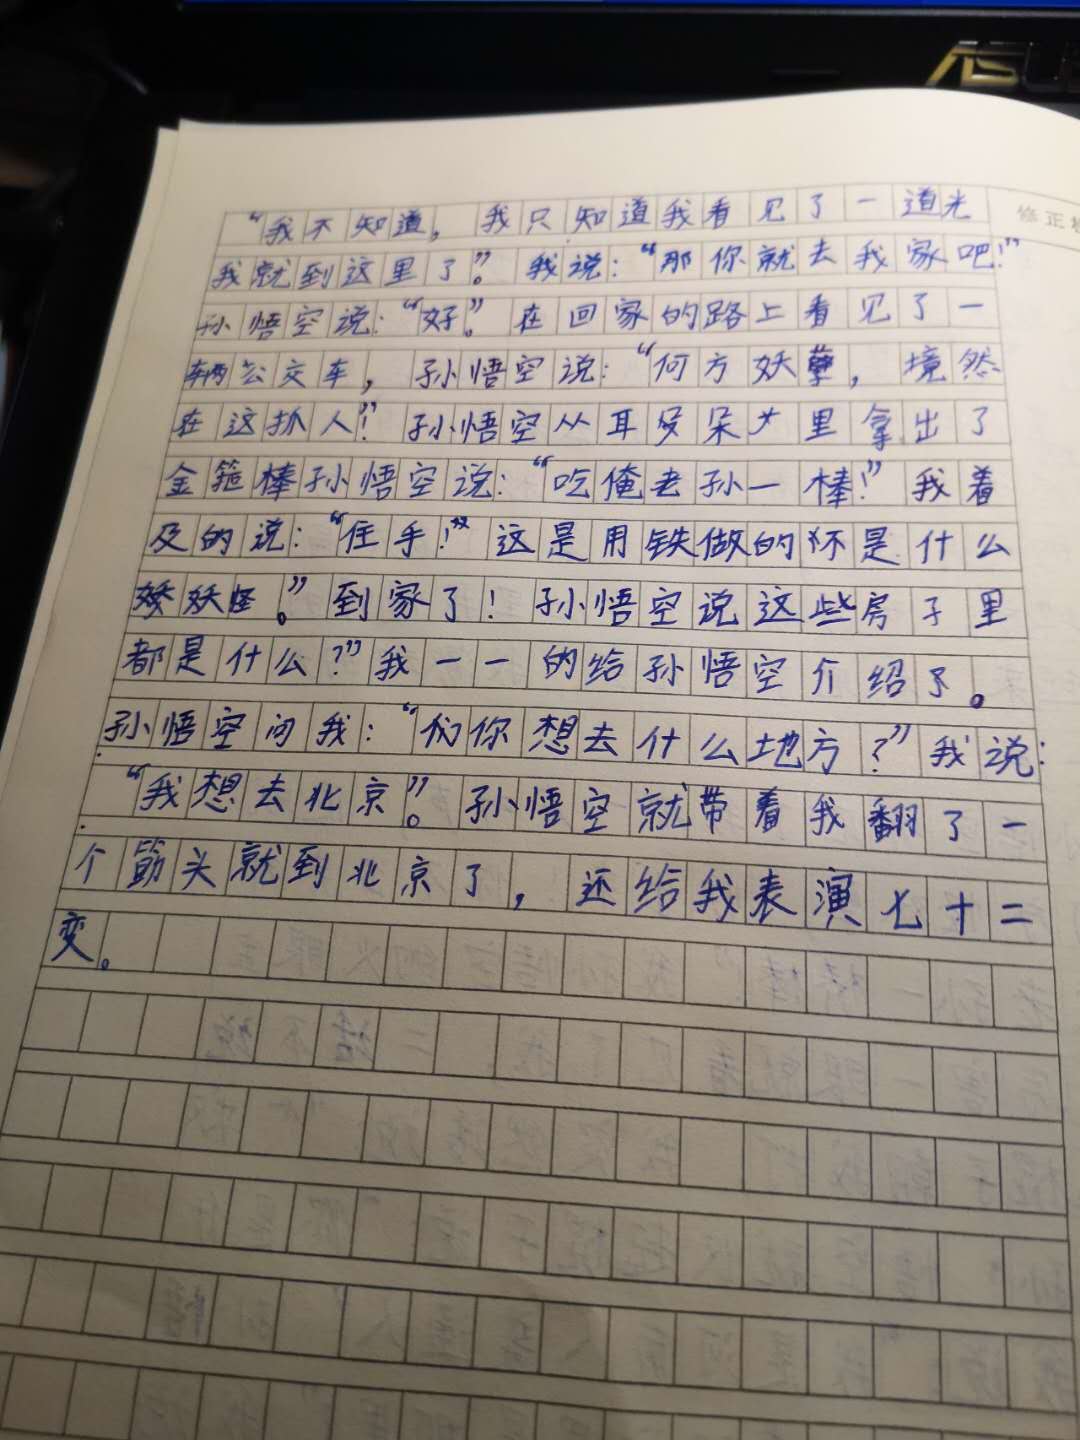 ASUS
修正栏
“我不知道，我只知道我看见了一道光
我就到这里了”。我说：“那你就去我家吧！”
孙悟空说：“好”。在回家的路上看见了一
辆公交车，孙悟空说：“何方妖孽，境然
在这抓人！”孙悟空从耳朵里拿出了
金箍棒孙悟空说：“吃俺老孙一棒！”我着
及的说：“住手！”这是用铁做的不是什么
妖怪。”到家了！孙悟空说这些房子里
都是什么？”我一一的给孙悟空介绍了。
孙悟空问我：“你想去什么地方？”我说：
“我想去北京”。孙悟空就带着我翻了一
个筋头就到北京了，还给我表演七十二
变。